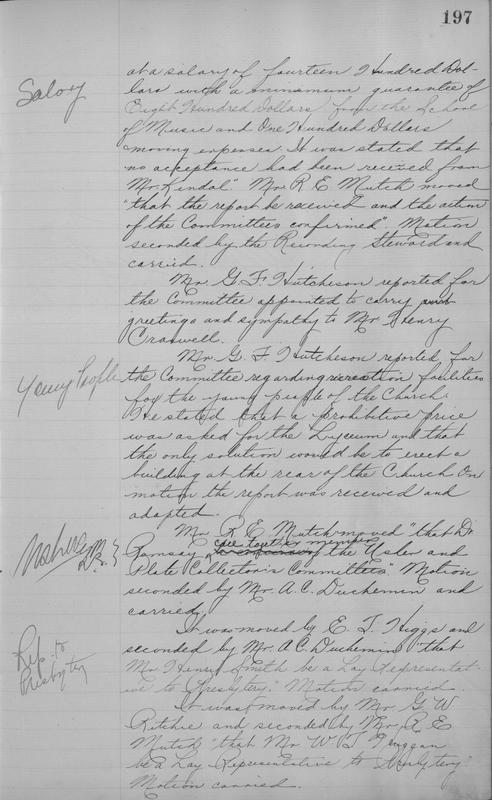 197
Salary
at a salary of fourteen Hundred Dol-
lars with a minimum guarantee of
Eight Hundred Dollars from the School
of Music and One Hundred Dollars
moving expenses. It was stated that
no acceptance had been received from
Mr. Kindal" Mr. R E Mutch moved
"that the report be received and the action
of the Committees confirmed". Motion
seconded by the Recording Steward and
carried.
Mr. G. F. Hutcheson reported for
the Committee appointed to carry
greetings and sympathy to Mr. Henry
Craswell.
Young People
Mr. G. F. Hutcheson reported for
the Committee regarding recreation facilities
for the young people of the Church.
He stated that a prohibitive price
was asked for the Lyceum and that
the only solution would be to erect a
building at the rear of the Church. On
motion the report was received and
adopted.
Ushers
Mr. R E Mutch moved "that Dr.
Ramsay call together members of the Usher and
Plate Collector's Committees." Motion
seconded by Mr. A. C. Duchemin and
carried.
Rep. to
Presbytery
It was moved by E. T. Higgs and
seconded by Mr. A C. Duchemin "that
Mr. Henry Smith be a Lay Representat-
ive to Presbytery." Motion carried.
It was moved by Mr. G. W
Ritchie and seconded by Mr. R E
Mutch "that Mr W T
be a Lay Representative to Presbytery"
Motion carried.